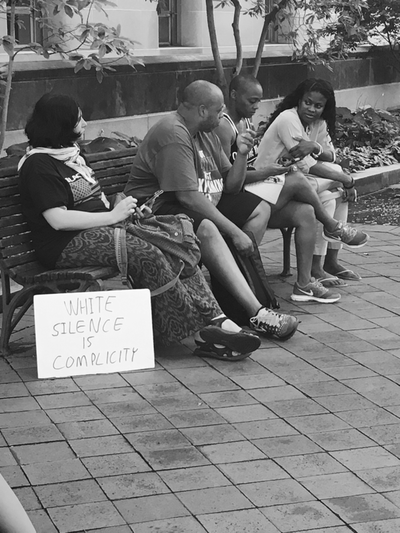 WHITE
SILENCE
IS
COMPLICITY